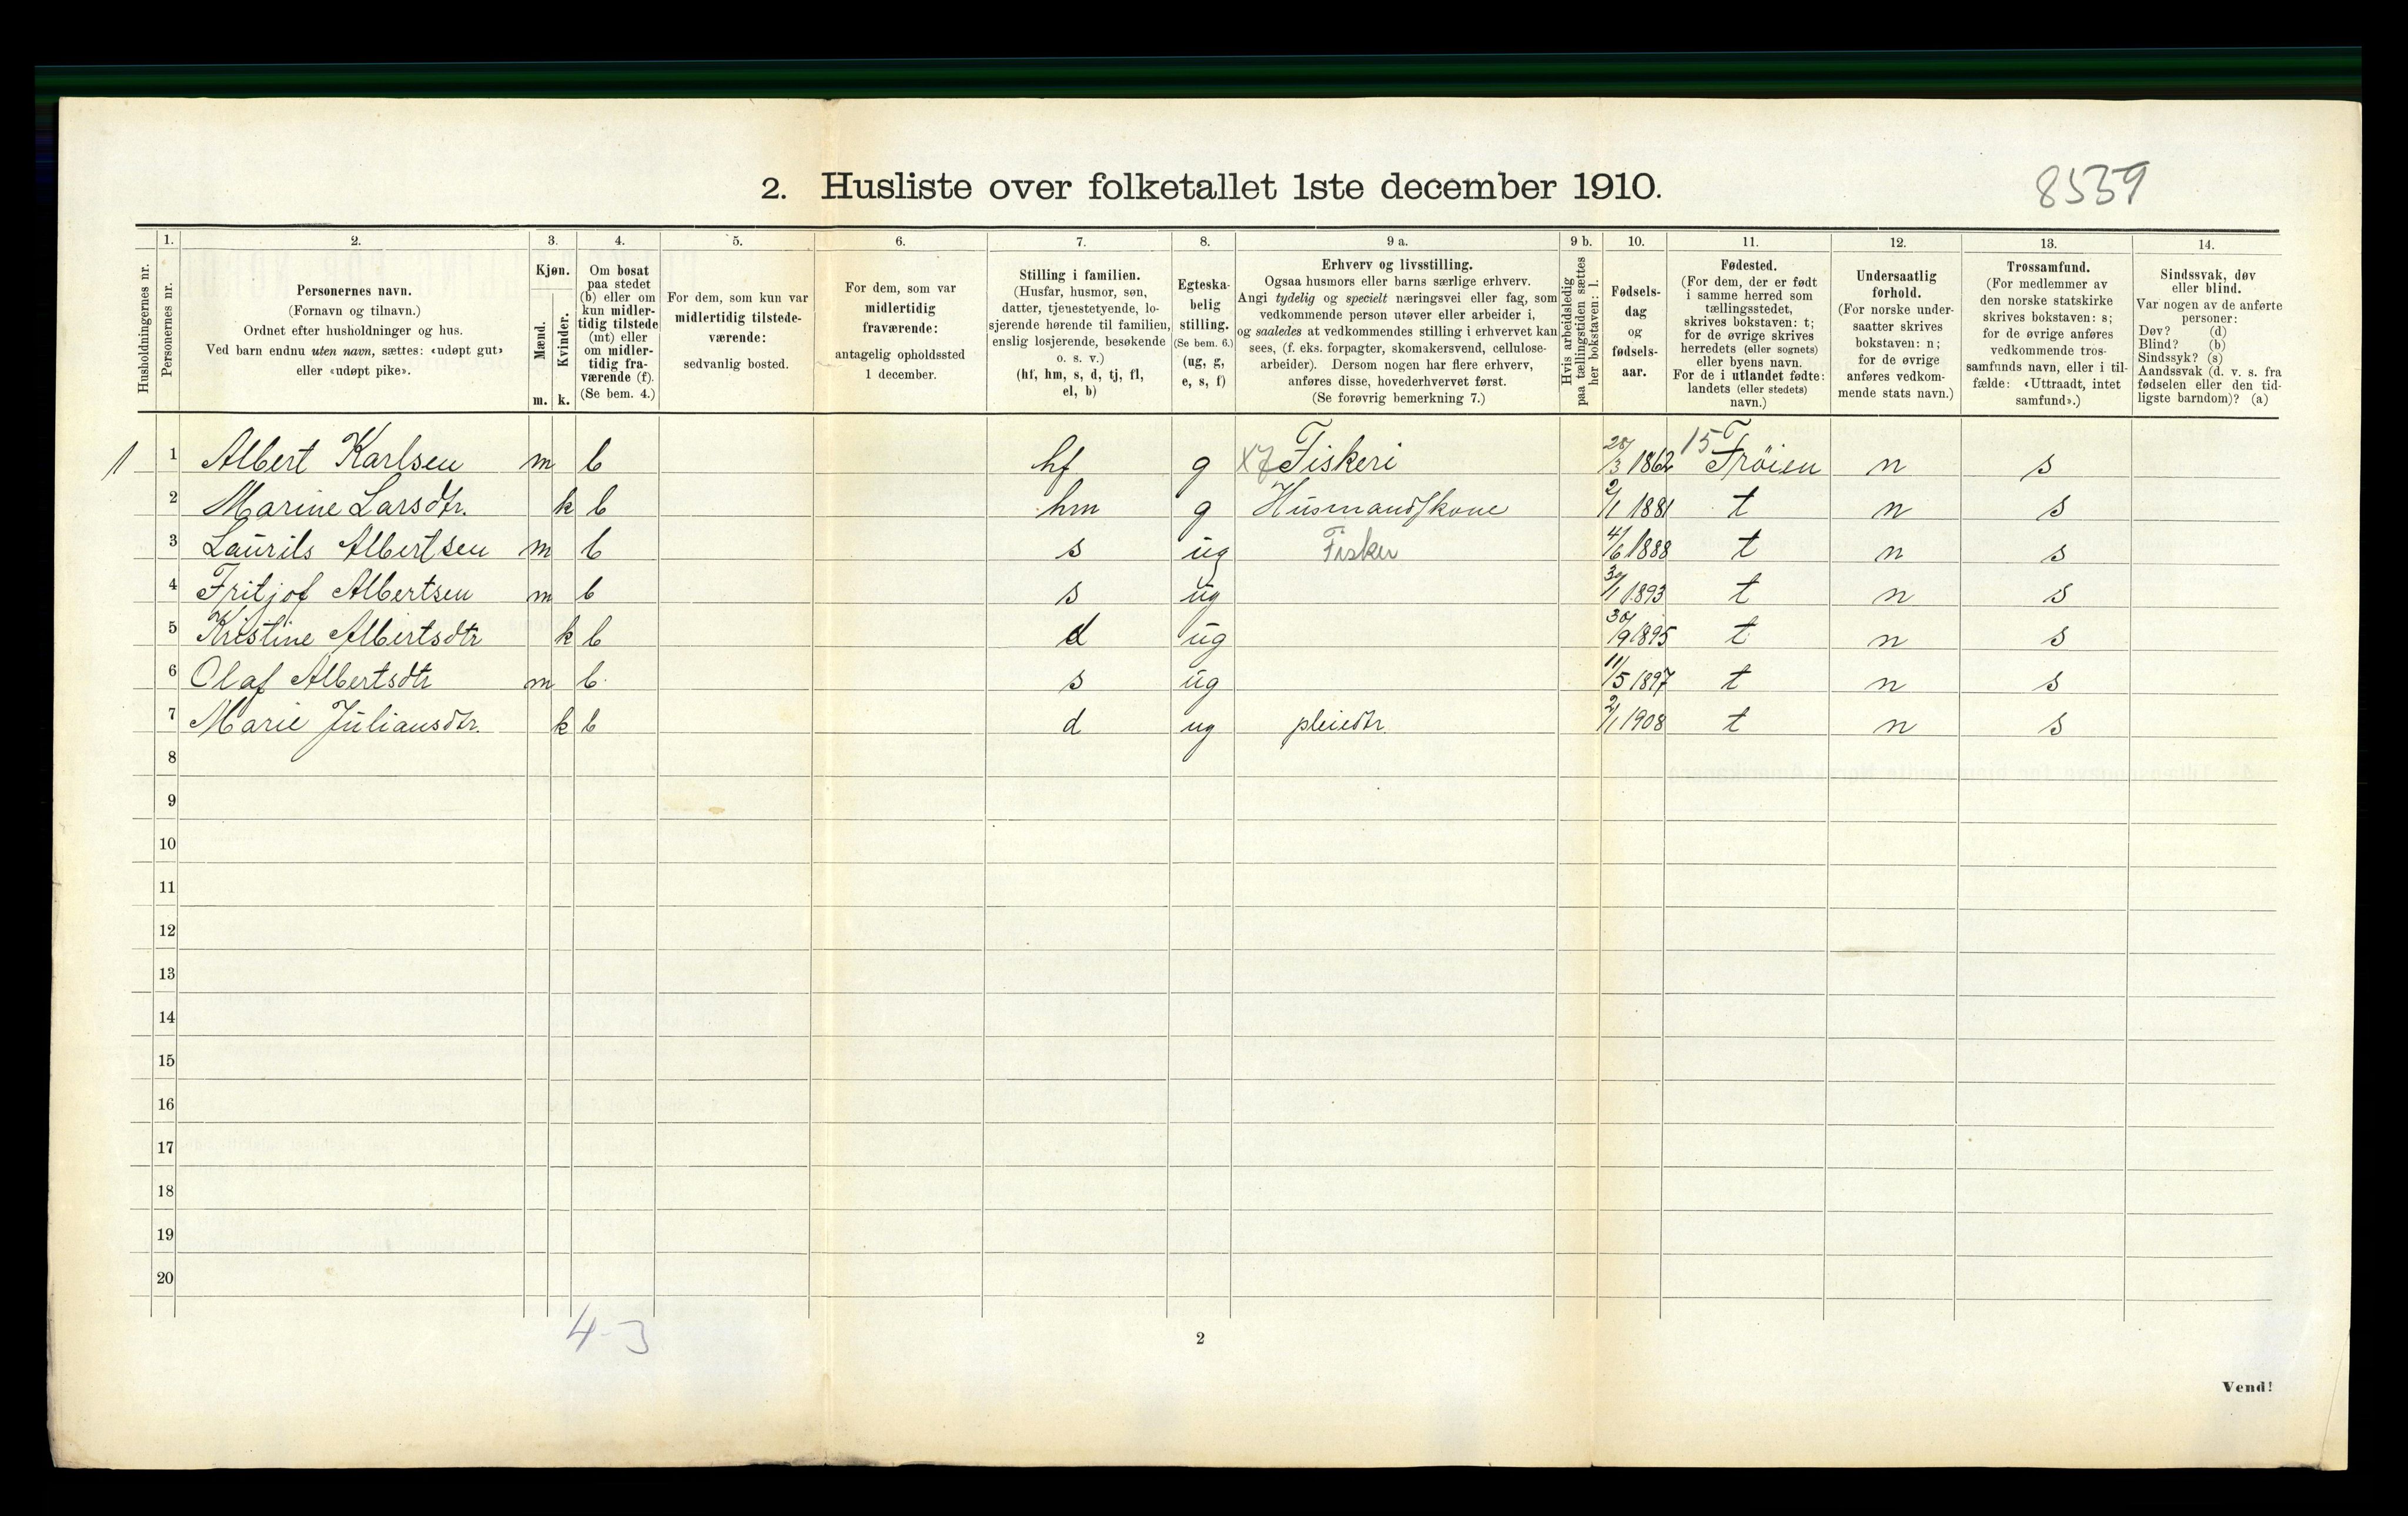 2. Husliste over folketallet 1ste december 1910.
8559
Husholdningernes nr.
1.
Personernes nr.
2.
Personernes navn.
(Fornavn og tilnavn.)
Ordnet efter husholdninger og hus.
Ved barn endnu uten navn, sættes: «udøpt gut»
eller «udøpt pike».
3.
Kjøn.
Mænd.
Kvinder.
m. k.
4.
Om bosat
paa stedet
(b) eller om
kun midler-
tidig tilstede
(mt) eller
om midler-
tidig fra-
værende (f).
(Se bem. 4.)
5.
For dem, som kun var
midlertidig tilstede-
værende:
sedvanlig bosted.
6.
For dem, som var
midlertidig
fraværende:
antagelig opholdssted
1 december.
7.
Stilling i familien.
(Husfar, husmor, søn,
datter, tjenestetyende, lo-
sjerende hørende til familien,
enslig losjerende, besøkende
o. s. v.)
(hf, hm, s, d, tj, fl,
el, b)
8.
Egteska-
belig
stilling.
(Se bem. 6.)
(ug, g,
e, s, f)
9 a.
Erhverv og livsstilling.
Ogsaa husmors eller barns særlige erhverv.
Angi tydelig og specielt næringsvei eller fag, som
vedkommende person utøver eller arbeider i,
og saaledes at vedkommendes stilling i erhvervet kan
sees, (f. eks. forpagter, skomakersvend, cellulose-
arbeider). Dersom nogen har flere erhverv,
anføres disse, hovederhvervet først.
(Se forøvrig bemerkning 7.)
9 b.
Hvis arbeidsledig
paa tællingstiden sættes
her bokstaven: l.
10.
Fødsels-
dag
og
fødsels-
aar.
11.
Fødested.
(For dem, der er født
i samme herred som
tællingsstedet,
skrives bokstaven: t;
for de øvrige skrives
herredets (eller sognets)
eller byens navn.
For de i utlandet fødte:
landets (eller stedets)
navn.)
12.
Undersaatlig
forhold.
(For norske under-
saatter skrives
bokstaven: n;
for de øvrige
anføres vedkom-
mende stats navn.)
13.
Trossamfund.
(For medlemmer av
den norske statskirke
skrives bokstaven: s;
for de øvrige anføres
vedkommende tros-
samfunds navn, eller i til-
fælde: «Uttraadt, intet
samfund».)
14.
Sindssvak, døv
eller blind.
Var nogen av de anførte
personer:
Døv? (d)
Blind? (b)
Sindssyk? (s)
Aandssvak (d. v. s. fra
fødselen eller den tid-
ligste barndom)? (a)
1 1 Albert Karlsen m b hf g X7 Fiskeri 28/3 1862 15 Frøien n s
2 Marine Larsdtr. k b hm g Husmandskone 2/1 1881 t n s
3 Laurits Albertsen m b s ug Fisker 4/6 1888 t n s
4 Fritjof Albertsen m b s ug 30/1 1893 t n s
5 Kristine Albertsdtr k b d ug 30/9 1895 t n s
6 Olaf Albertsdtr m b s ug 11/5 1897 t n s
7 Marie Juliansdtr. k b d ug pleiedtr. 2/1 1908 t n s
8
9
10
11
12
13
14
15
16
17
18
19
20
4-3
2
Vend!